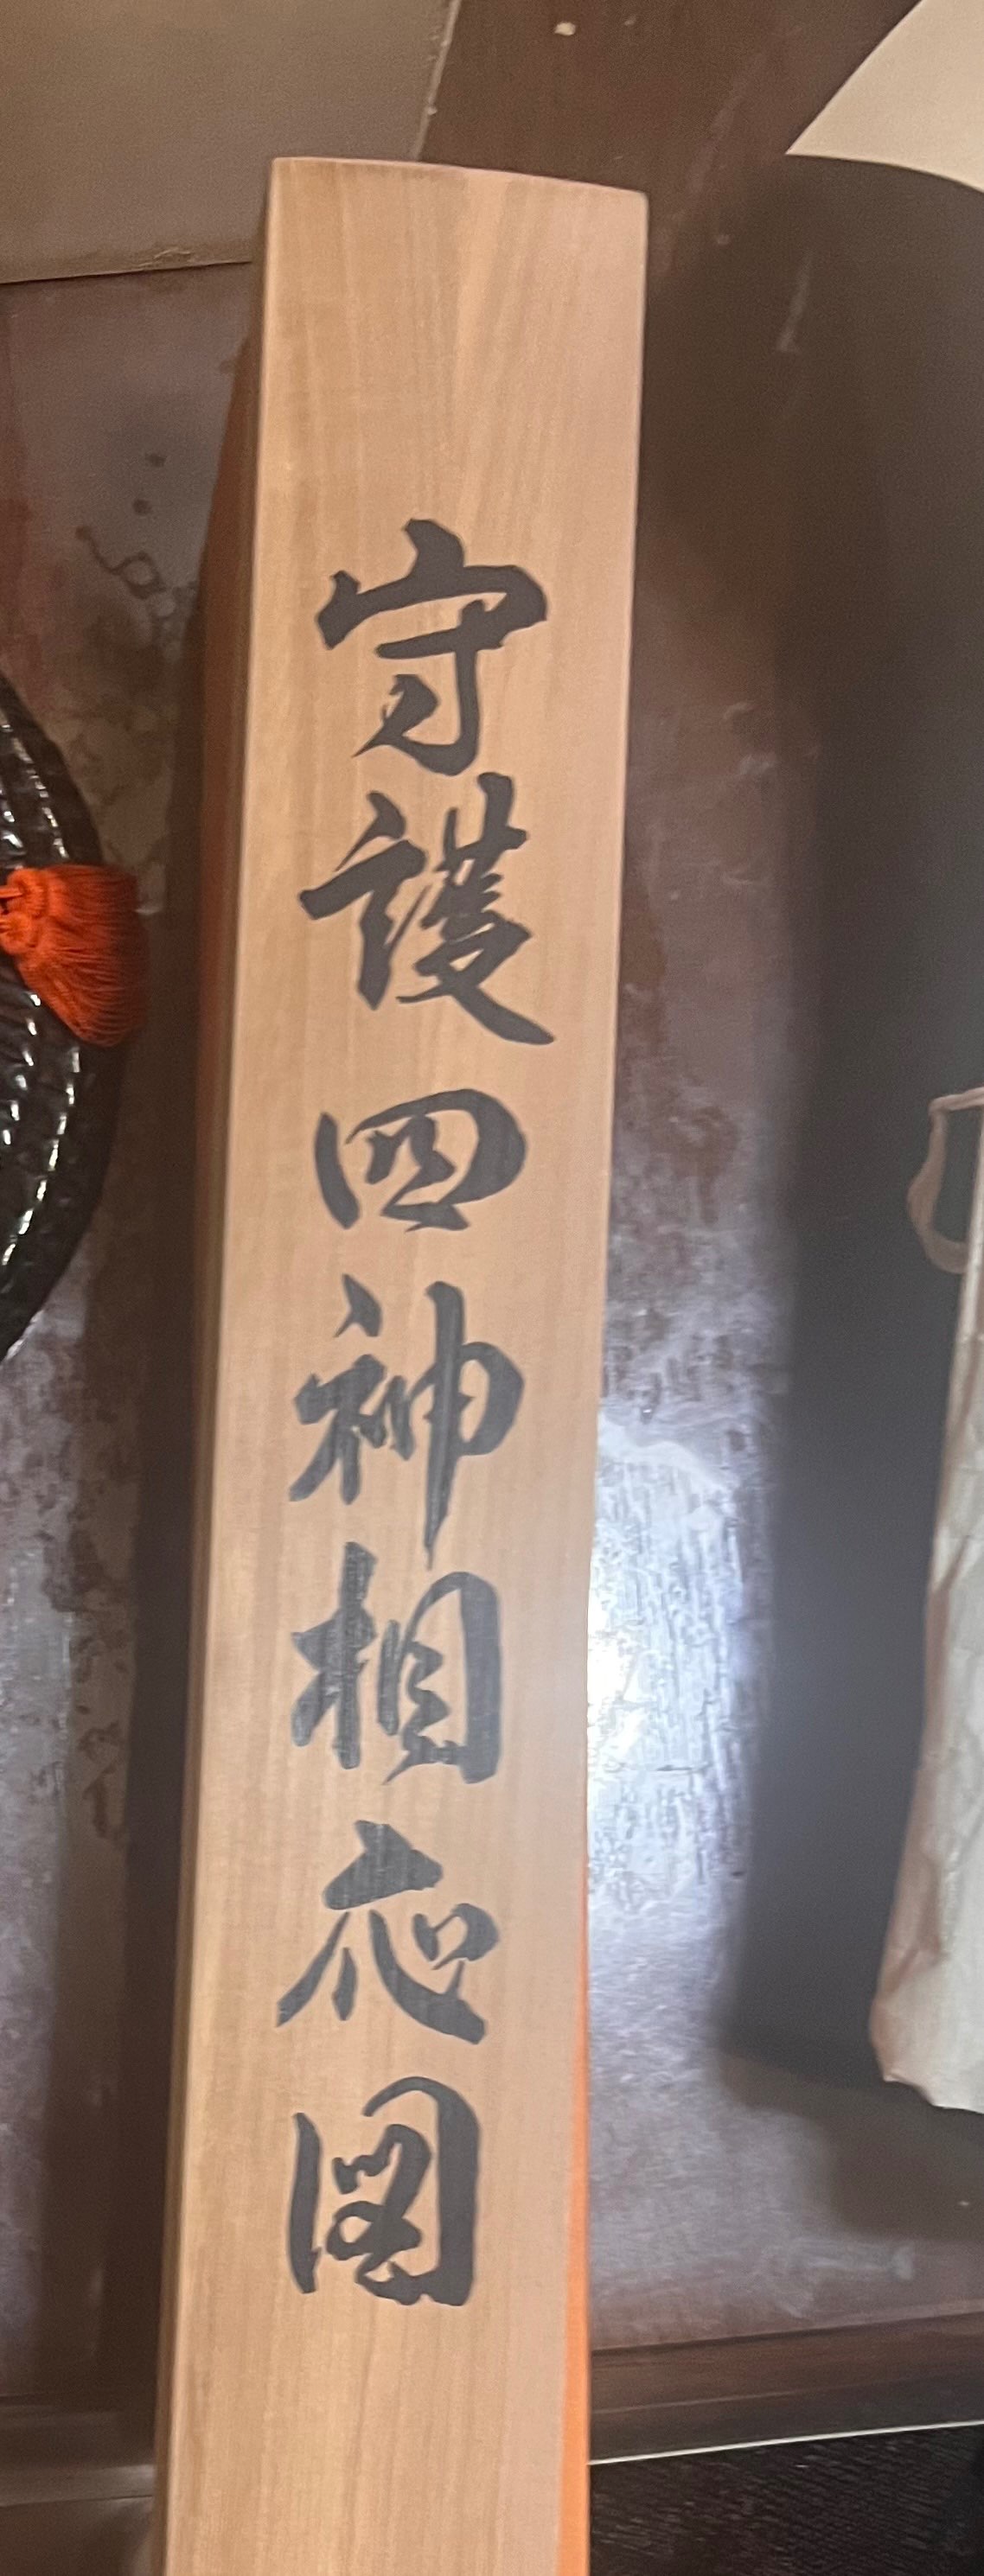 守護四神相応図